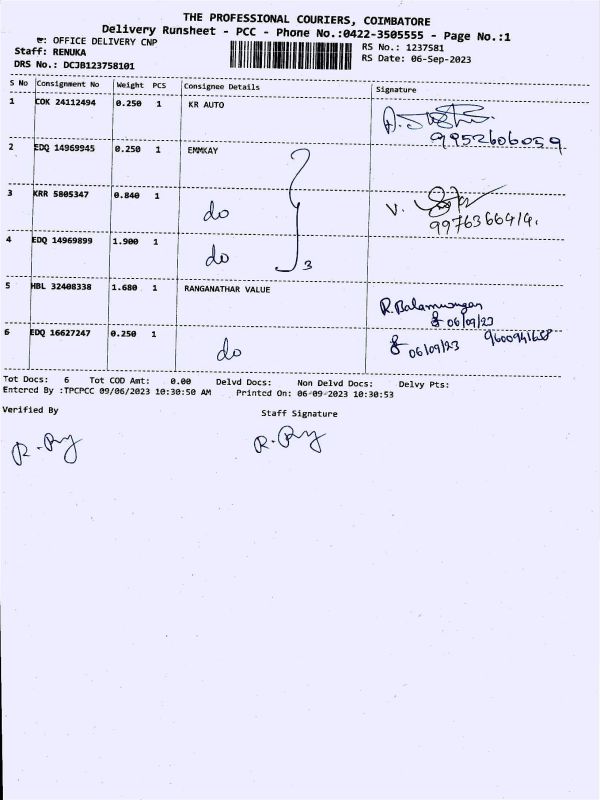 THE PROFESSIONAL COURIERS, COIMBATORE
Delivery Runsheet - PCC - Phone No.:0422-3505555 - Page No.:1
e: OFFICE DELIVERY CNP
RS No.: 1237581
Staff: RENUKA
RS Date: 06-Sep-2023
DRS No.: DCJB123758101
S No Consignment No Weight PCS Consignee Details Signature
1 COK 24112494 0.250 1 KR AUTO
9952606059
2 EDQ 14969945 0.250 1 EMMKAY
3 KRR 5805347 0.840 1 do V.
9976366414.
4 EDQ 14969899 1.900 1 do 3
5 HBL 32408338 1.680 1 RANGANATHAR VALUE R. Balamurugan
06/09/23
6 EDQ 16627247 0.250 1 do 06/09/23
Tot Docs: 6 Tot COD Amt: 0.00 Delvd Docs: Non Delvd Docs: Delvy Pts:
Entered By :TPCPCC 09/06/2023 10:30:50 AM Printed On: 06-09-2023 10:30:53
Verified By Staff Signature